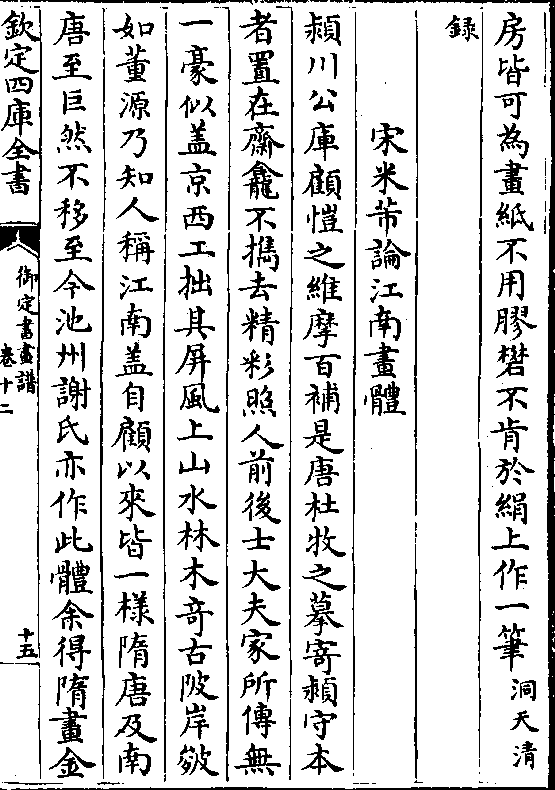 房皆可為畫紙不用膠礬不肯於絹上作一筆洞天清
録
宋米芾論江南畫體
潁川公庫顧愷之維摩百補是唐杜牧之摹寄潁守本
者置在齋龕不擕去精彩照人前後士大夫家所傳無
一豪似盖京西工拙其屏風上山水林木竒古陂岸皴
如董源乃知人稱江南盖自顧以來皆一様隋唐及南
唐至巨然不移至今池州謝氏亦作此體余得隋畫金
欽定四庫全書
御定書畫譜
卷十二
十五